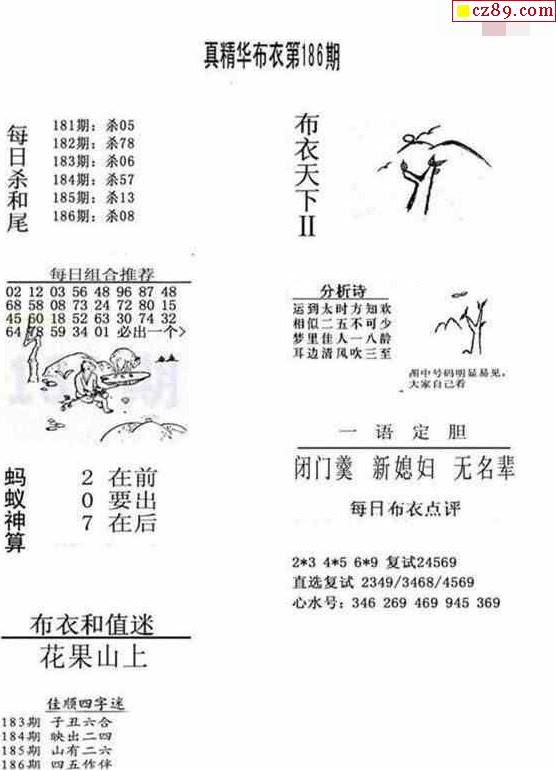 cz89.com
真精华布衣第186期
每日杀和尾
181期: 杀05
182期: 杀78
183期: 杀06
184期: 杀57
185期: 杀13
186期: 杀08
布衣天下II
每日组合推荐
02 12 03 56 48 96 87 48
68 58 08 73 24 72 80 15
45 60 18 52 63 30 74 32
64 78 59 34 01 必出一个>
分析诗
运到太时方知欢
相似二五不可少
梦里佳人一八龄
耳边清风吹三至
胡中号码明显易见,
大家自己看
一语定胆
闭门羹 新媳妇 无名辈
蚂蚁神算
2 在前
0 要出
7 在后
每日布衣点评
2*3 4*5 6*9 复试24569
直选复试 2349/3468/4569
心水号: 346 269 469 945 369
布衣和值迷
花果山上
佳顺四字迷
183期 子丑六合
184期 映出二四
185期 山有二六
186期 四五作伴